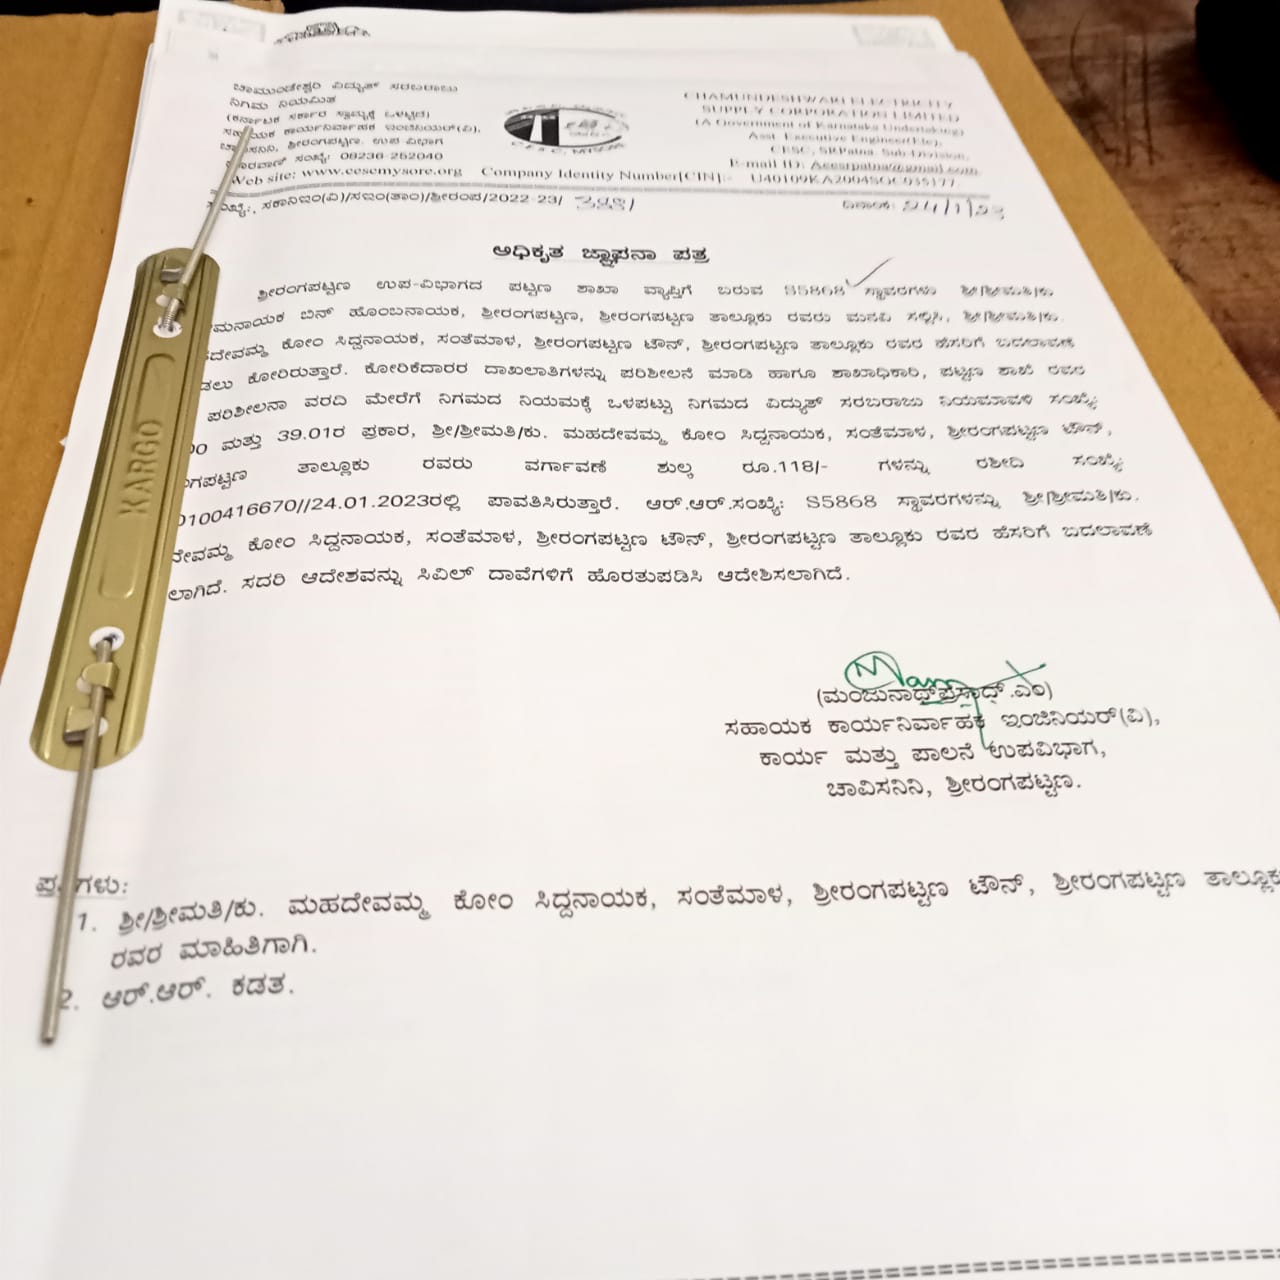 ಚಾಮುಂಡೇಶ್ವರಿ ವಿದ್ಯುತ್ ಸರಬರಾಜು
ನಿಗಮ ನಿಯಮಿತ
(ಕರ್ನಾಟಕ ಸರ್ಕಾರ ಸ್ವಾಮ್ಯಕ್ಕೆ ಒಳಪಟ್ಟಿದೆ)
ಕಾರ್ಯನಿರ್ವಾಹಕ ಇಂಜಿನಿಯರ್(ವಿ),
ಶ್ರೀರಂಗಪಟ್ಟಣ. ಉಪ ವಿಭಾಗ
ಸಂಖ್ಯೆ: 08236-252040
Web site: www.cescmysore.org Company Identity Number[CIN]:- U40109KA2004SOC035177
CHAMUNDESHWARI ELECTRICITY
SUPPLY CORPORATION LIMITED
(A Government of Karnataka Undertaking)
Asst. Executive Engineer(Ele),
CESC, SRPatna. Sub Division,
E-mail ID: Aeesrpatna@gmail.com
ಸಂಖ್ಯೆ:, ಸಕಾನಿಇಂ(ವಿ)/ಸಇಂ(ತಾಂ)/ಶ್ರೀರಂಪ/2022-23/
ದಿನಾಂಕ: 24/1/23
ಅಧಿಕೃತ ಜ್ಞಾಪನಾ ಪತ್ರ
ಶ್ರೀರಂಗಪಟ್ಟಣ ಉಪ-ವಿಭಾಗದ ಪಟ್ಟಣ ಶಾಖಾ ವ್ಯಾಪ್ತಿಗೆ ಬರುವ S5868 ಸ್ಥಾವರಗಳು ಶ್ರೀ/ಶ್ರೀಮತಿ/ಕು
ಮನಾಯಕ ಬಿನ್ ಹೊಂಬನಾಯಕ, ಶ್ರೀರಂಗಪಟ್ಟಣ, ಶ್ರೀರಂಗಪಟ್ಟಣ ತಾಲ್ಲೂಕು ರವರು ಮನವಿ ಸಲ್ಲಿಸಿ, ಶ್ರೀ/ಶ್ರೀಮತಿ/ಕು.
ದೇವಮ್ಮ ಕೋಂ ಸಿದ್ದನಾಯಕ, ಸಂತೆಮಾಳ, ಶ್ರೀರಂಗಪಟ್ಟಣ ಟೌನ್, ಶ್ರೀರಂಗಪಟ್ಟಣ ತಾಲ್ಲೂಕು ರವರ ಹೆಸರಿಗೆ ಬದಲಾವಣೆ
ಡಲು ಕೋರಿರುತ್ತಾರೆ. ಕೋರಿಕೆದಾರರ ದಾಖಲಾತಿಗಳನ್ನು ಪರಿಶೀಲನೆ ಮಾಡಿ ಹಾಗೂ ಶಾಖಾಧಿಕಾರಿ, ಪಟ್ಟಣ ಶಾಖೆ ರವರ
ಪರಿಶೀಲನಾ ವರದಿ ಮೇರೆಗೆ ನಿಗಮದ ನಿಯಮಕ್ಕೆ ಒಳಪಟ್ಟು ನಿಗಮದ ವಿದ್ಯುತ್ ಸರಬರಾಜು ನಿಯಮಾವಳಿ ಸಂಖ್ಯೆ:
00 ಮತ್ತು 39.01ರ ಪ್ರಕಾರ, ಶ್ರೀ/ಶ್ರೀಮತಿ/ಕು. ಮಹದೇವಮ್ಮ ಕೋಂ ಸಿದ್ದನಾಯಕ, ಸಂತೆಮಾಳ, ಶ್ರೀರಂಗಪಟ್ಟಣ ಟೌನ್,
ಗಪಟ್ಟಣ ತಾಲ್ಲೂಕು ರವರು ವರ್ಗಾವಣೆ ಶುಲ್ಕ ರೂ.118/- ಗಳನ್ನು ರಶೀದಿ ಸಂಖ್ಯೆ:
0100416670//24.01.2023ರಲ್ಲಿ ಪಾವತಿಸಿರುತ್ತಾರೆ. ಆರ್.ಆರ್.ಸಂಖ್ಯೆ: S5868 ಸ್ಥಾವರಗಳನ್ನು ಶ್ರೀ/ಶ್ರೀಮತಿ/ಕು.
ದೇವಮ್ಮ ಕೋಂ ಸಿದ್ದನಾಯಕ, ಸಂತೆಮಾಳ, ಶ್ರೀರಂಗಪಟ್ಟಣ ಟೌನ್, ಶ್ರೀರಂಗಪಟ್ಟಣ ತಾಲ್ಲೂಕು ರವರ ಹೆಸರಿಗೆ ಬದಲಾವಣೆ
ಲಾಗಿದೆ. ಸದರಿ ಆದೇಶವನ್ನು ಸಿವಿಲ್ ದಾವೆಗಳಿಗೆ ಹೊರತುಪಡಿಸಿ ಆದೇಶಿಸಲಾಗಿದೆ.
(ಮಂಜುನಾಥ್‌ಪ್ರಸಾದ್.ಎಂ)
ಸಹಾಯಕ ಕಾರ್ಯನಿರ್ವಾಹಕ ಇಂಜಿನಿಯರ್(ವಿ),
ಕಾರ್ಯ ಮತ್ತು ಪಾಲನೆ ಉಪವಿಭಾಗ,
ಚಾವಿಸನಿನಿ, ಶ್ರೀರಂಗಪಟ್ಟಣ.
KARGO
1. ಶ್ರೀ/ಶ್ರೀಮತಿ/ಕು. ಮಹದೇವಮ್ಮ ಕೋಂ ಸಿದ್ದನಾಯಕ, ಸಂತೆಮಾಳ, ಶ್ರೀರಂಗಪಟ್ಟಣ ಟೌನ್, ಶ್ರೀರಂಗಪಟ್ಟಣ ತಾಲ್ಲೂಕು
ರವರ ಮಾಹಿತಿಗಾಗಿ.
2. ಆರ್.ಆರ್. ಕಡತ.